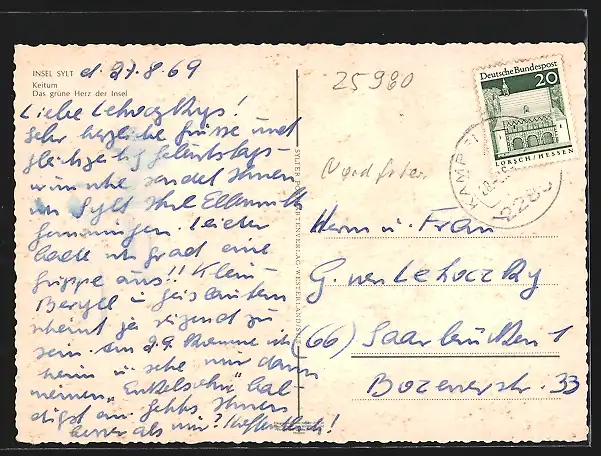 INSEL SYLT d. 27.8.69
Keitum
Das grüne Herz der Insel
Liebe Lehoczkys!
Sehr herzliche Grüsse und
gleichzeitig Geburtstags-
wünsche sendet Ihnen
von Sylt Ihre
Leider
hatte ich grad eine
Grippe aus!! Klein
in
scheint ja reizend zu
sein. Am 2.9. komme ich
heim u. sehe mir dann
meinen "Enkelsohn" bal-
digst an. Gehts Ihnen
besser als mir? Hoffentlich!
SYLTER POSTKARTENVERLAG-WESTERLAND/SYLT
25980
Nordfries.
Deutsche Bundespost
20
LORSCH/HESSEN
KAMPEN
2285
Herrn u. Frau
G. von Lehoczky
(66) Saarbrücken 1
Bozenerstr. 33